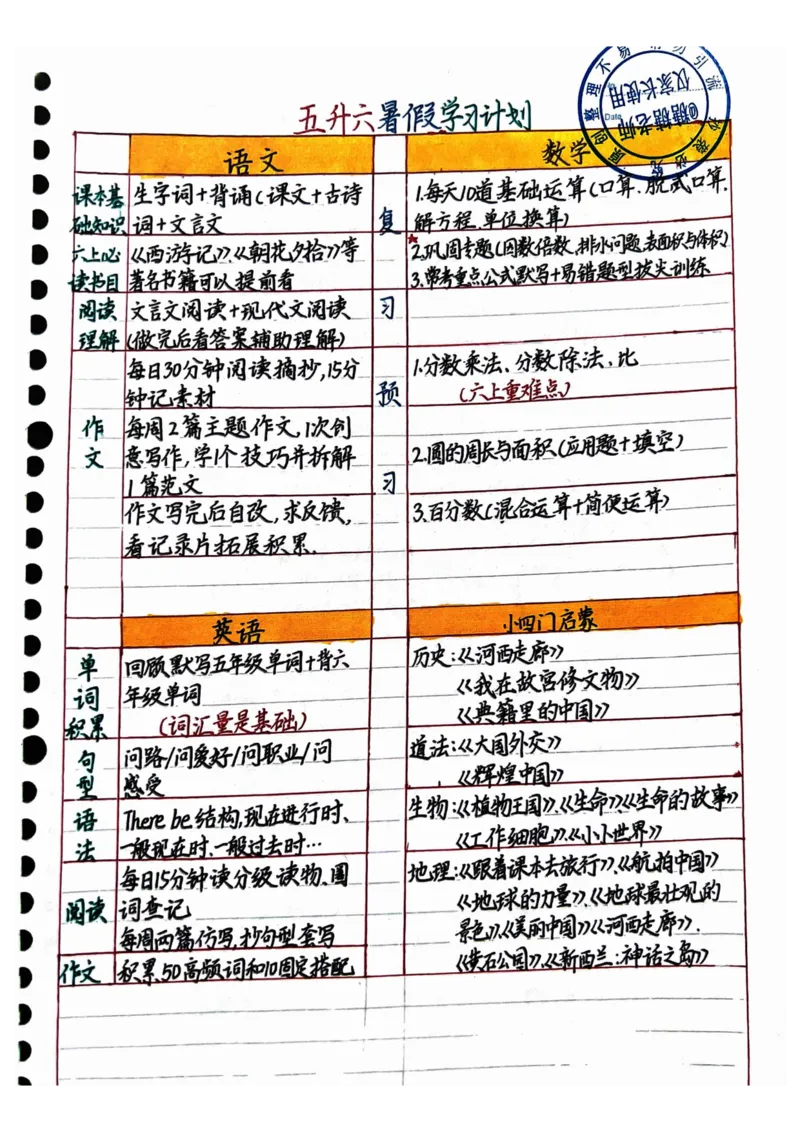 五升六暑假学习计划
语文
课本基
础知识
生字词+背诵(课文+古诗
词+文言文
六上必
读书目
《西游记》《朝花夕拾》等
著名书籍可以提前看
阅读
理解
文言文阅读+现代文阅读
(做完后看答案辅助理解)
作
文
每日30分钟阅读摘抄,15分
钟记素材
每周2篇主题作文,1次创
意写作,学1个技巧并拆解
1篇范文
作文写完后自改,求反馈,
看记录片拓展积累.
数学
复
习
1.每天10道基础运算(口算.脱式口算.
解方程.单位换算)
2.巩固专题(因数倍数,排水问题,表面积与体积)
3.常考重点公式默写+易错题型拔尖训练
预
习
1.分数乘法、分数除法、比
(六上重难点)
2.圆的周长与面积(应用题+填空)
3.百分数(混合运算+简便运算)
英语
单
词
积累
回顾默写五年级单词+背六
年级单词
(词汇量是基础)
句
型
问路/问爱好/问职业/问
感受
语
法
There be结构,现在进行时、
一般现在时、一般过去时…
阅读
每日15分钟读分级读物、圈
词查记
每周两篇仿写,抄句型套写
作文
积累50高频词和10固定搭配
小四门启蒙
历史:《河西走廊》
《我在故宫修文物》
《典籍里的中国》
道法:《大国外交》
《辉煌中国》
生物:《植物王国》、《生命》《生命的故事》
《工作细胞》、《小小世界》
地理:《跟着课本去旅行》、《航拍中国》
《地球的力量》、《地球最壮观的
景色》、《美丽中国》《河西走廊》.
《黄石公园》、《新西兰:神话之岛》
仅家长使用
@糖糖老师
Date